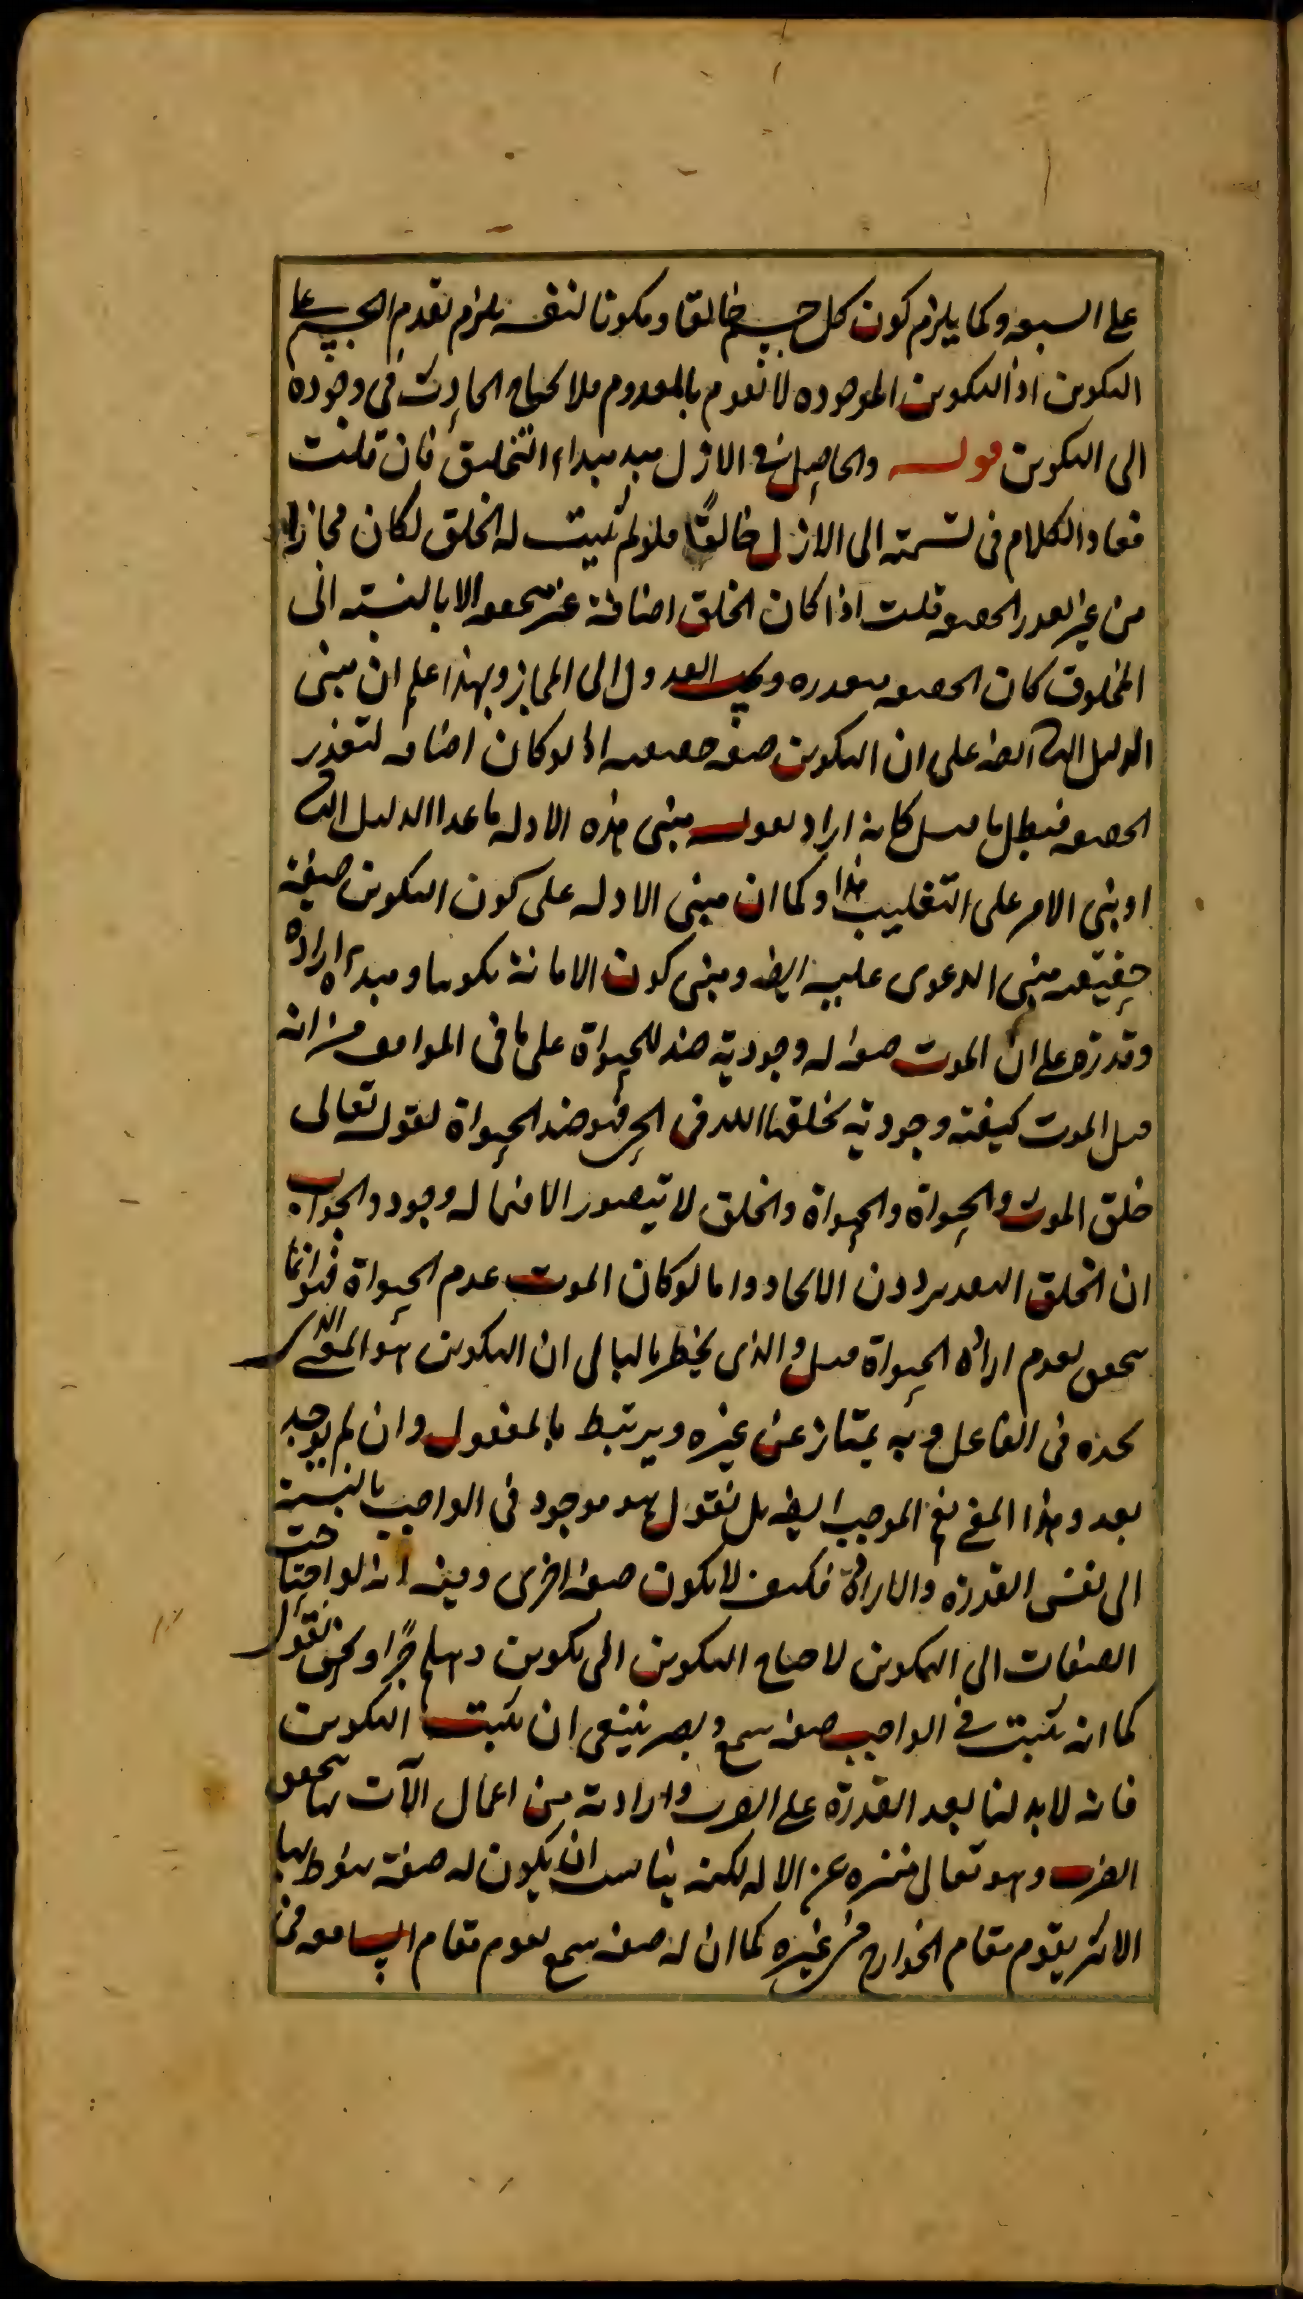 على السبعه وكما يلزم كون كل جسم خالقا ومكونا لنفسه يلزم تقدم الجسم على
التكوين اذ التكوين الموجوده لا تقوم بالمعدوم فلا يحتاج الحادث في وجوده
الى التكوين قوله والحاصل في الازل مبدء التخليق فان قلت
فعاد الكلام في تسميته الى الازل خالقًا فلو لم يثبت له الخلق لكان مجازا
من غير تعذر الحقيقه قلت اذا كان الخلق اضافة غير متحققه الا بالنسبته الى
المخلوق كان الحقيقه متعذره ويجب العدول الى المجاز وبهذا علم ان مبنى
الدليل الثاني ايضا على ان التكوين صفه حقيقيه اذ لو كان اضافه لتعذر
الحقيقه فبطل ما قيل كانه اراد بقوله مبنى هذه الادله ما عدا الدليل الثاني
او بنى الامر على التغليب هذا وكما ان مبنى الادله على كون التكوين صفة
حقيقيه مبنى الدعوى عليه ايضا ومبنى كون الاماتة تكوينا ومبدء ارادة
وقدرة على ان الموت صفه له وجودية ضد للحيواة على ما في المواقف من انه
قيل الموت كيفية وجودية يخلقها الله في الحي فهو ضد الحيواة لقوله تعالى
خلق الموت والحيواة والحيواة والخلق لا يتصور الا فيما له وجود والجواب
ان الخلق التقدير دون الايجاد واما لو كان الموت عدم الحيواة فهو انما
يتحقق بعدم ارادة الحيواة قيل والذى يخطر بالبالى ان التكوين هو المعنى الذى
نجده في الفاعل وبه يمتاز عن غيره ويرتبط بالمفعول وان لم يوجد
بعد وهذا المعنى يعم الموجب ايضا بل نقول هو موجود في الواجب بالنسبة
الى نفس القدرة والارادة فكيف لا يكون صفه اخرى وفيه انه لو احتاجت
الصفات الى التكوين لاحتاج التكوين الى تكوين وهلم جرًا ونحن نقول
كما انه يثبت في الواجب صفه سمع وبصر ينبغى ان يثبت التكوين
فانه لا بد لنا بعد القدرة على الضرب وارادته من اعمال الآت بها يتحقق
الضرب وهو تعالى منزه عن الاله لكنه يناسب ان يكون له صفة منوط بها
الاثر يقوم مقام الجوارح من غيره كما ان له صفه سمع يقوم مقام السامعه في